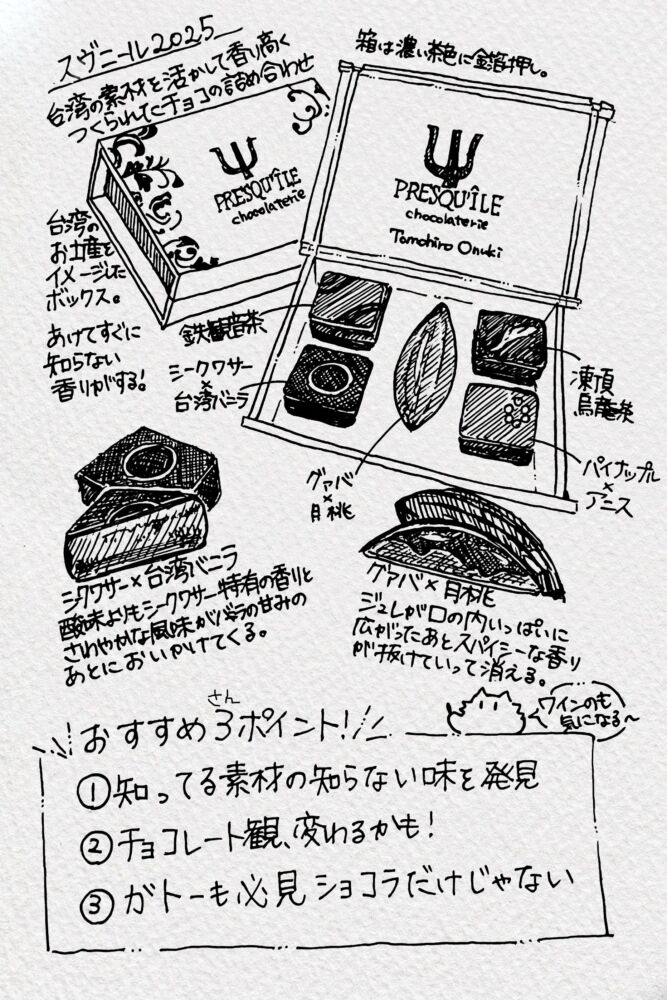 スヴニール2025
台湾の素材を活かして香り高く
つくられたチョコの詰め合わせ
箱は濃い茶色に金箔押し。
PRESQU'ÎLE
chocolaterie
PRESQU'ÎLE
chocolaterie
Tomohiro Onuki
台湾の
お土産を
イメージした
ボックス。
あけてすぐに
知らない
香りがする!
鉄観音茶
シークワサー
×
台湾バニラ
グァバ
×
月桃
凍頂
烏龍茶
パイナップル
×
アニス
シークワサー×台湾バニラ
酸味よりもシークワサー特有の香りと
さわやかな風味がバニラの甘みの
あとにおいかけてくる。
グァバ×月桃
ジュレが口の内いっぱいに
広がったあとスパイシーな香り
が抜けていって消える。
ワインのも
気になる~
さん
おすすめ3ポイント!
①知ってる素材の知らない味を発見
②チョコレート観、変わるかも!
③ガトーも必見 ショコラだけじゃない